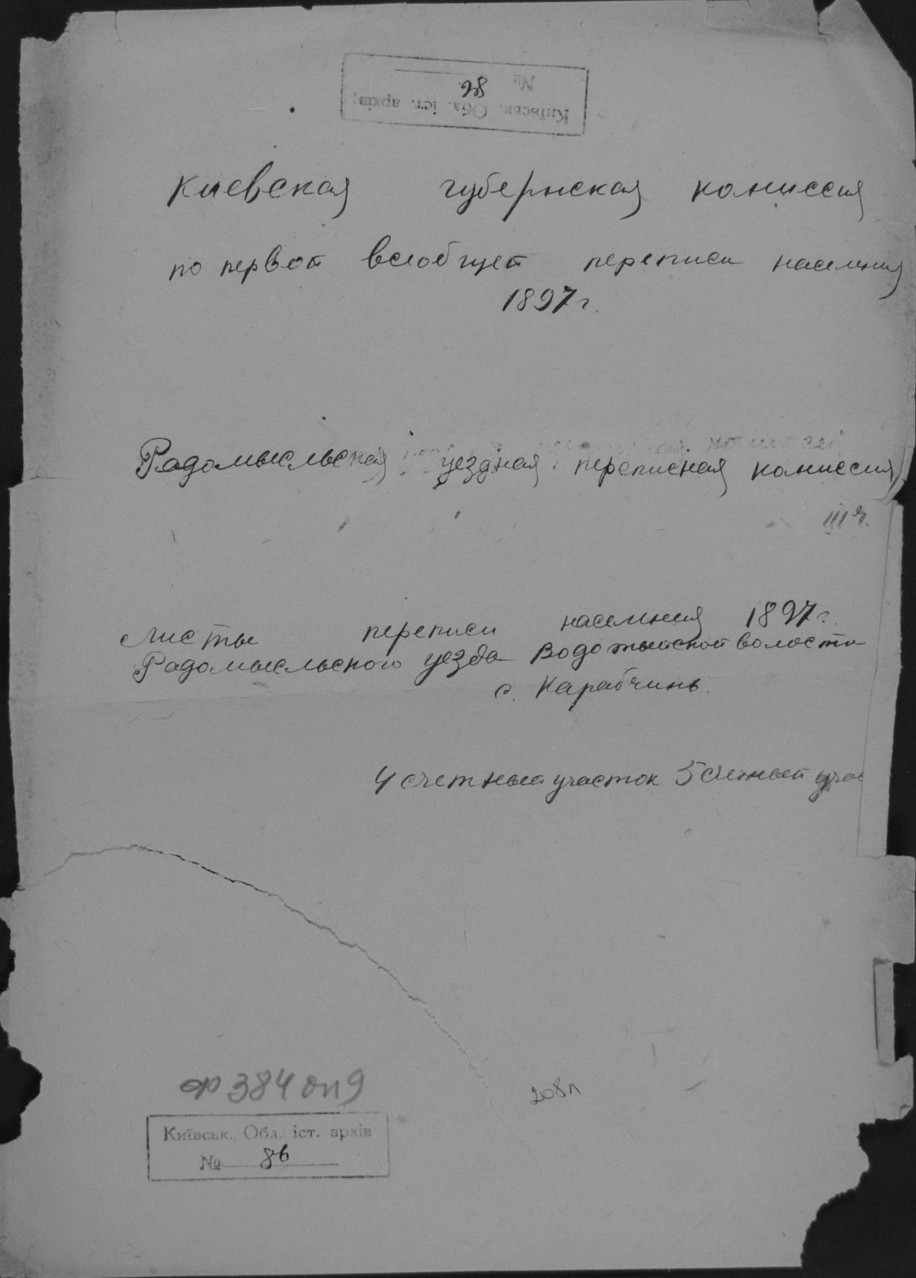 Київськ. Обл. іст. архів
№ 86
Киевская губернская комиссия
по первой всеобщей переписи населения
1897 г.
Радомысльская уездная переписная комиссия
III ч.
Листы переписи населения 1897 г.
Радомысльского уезда Водотыйской волости
с. Карабчинь.
4 счетный участок 5 счетный учас
Ф 384 оп 9
208 л
Київськ., Обл. іст. архів
№ 86